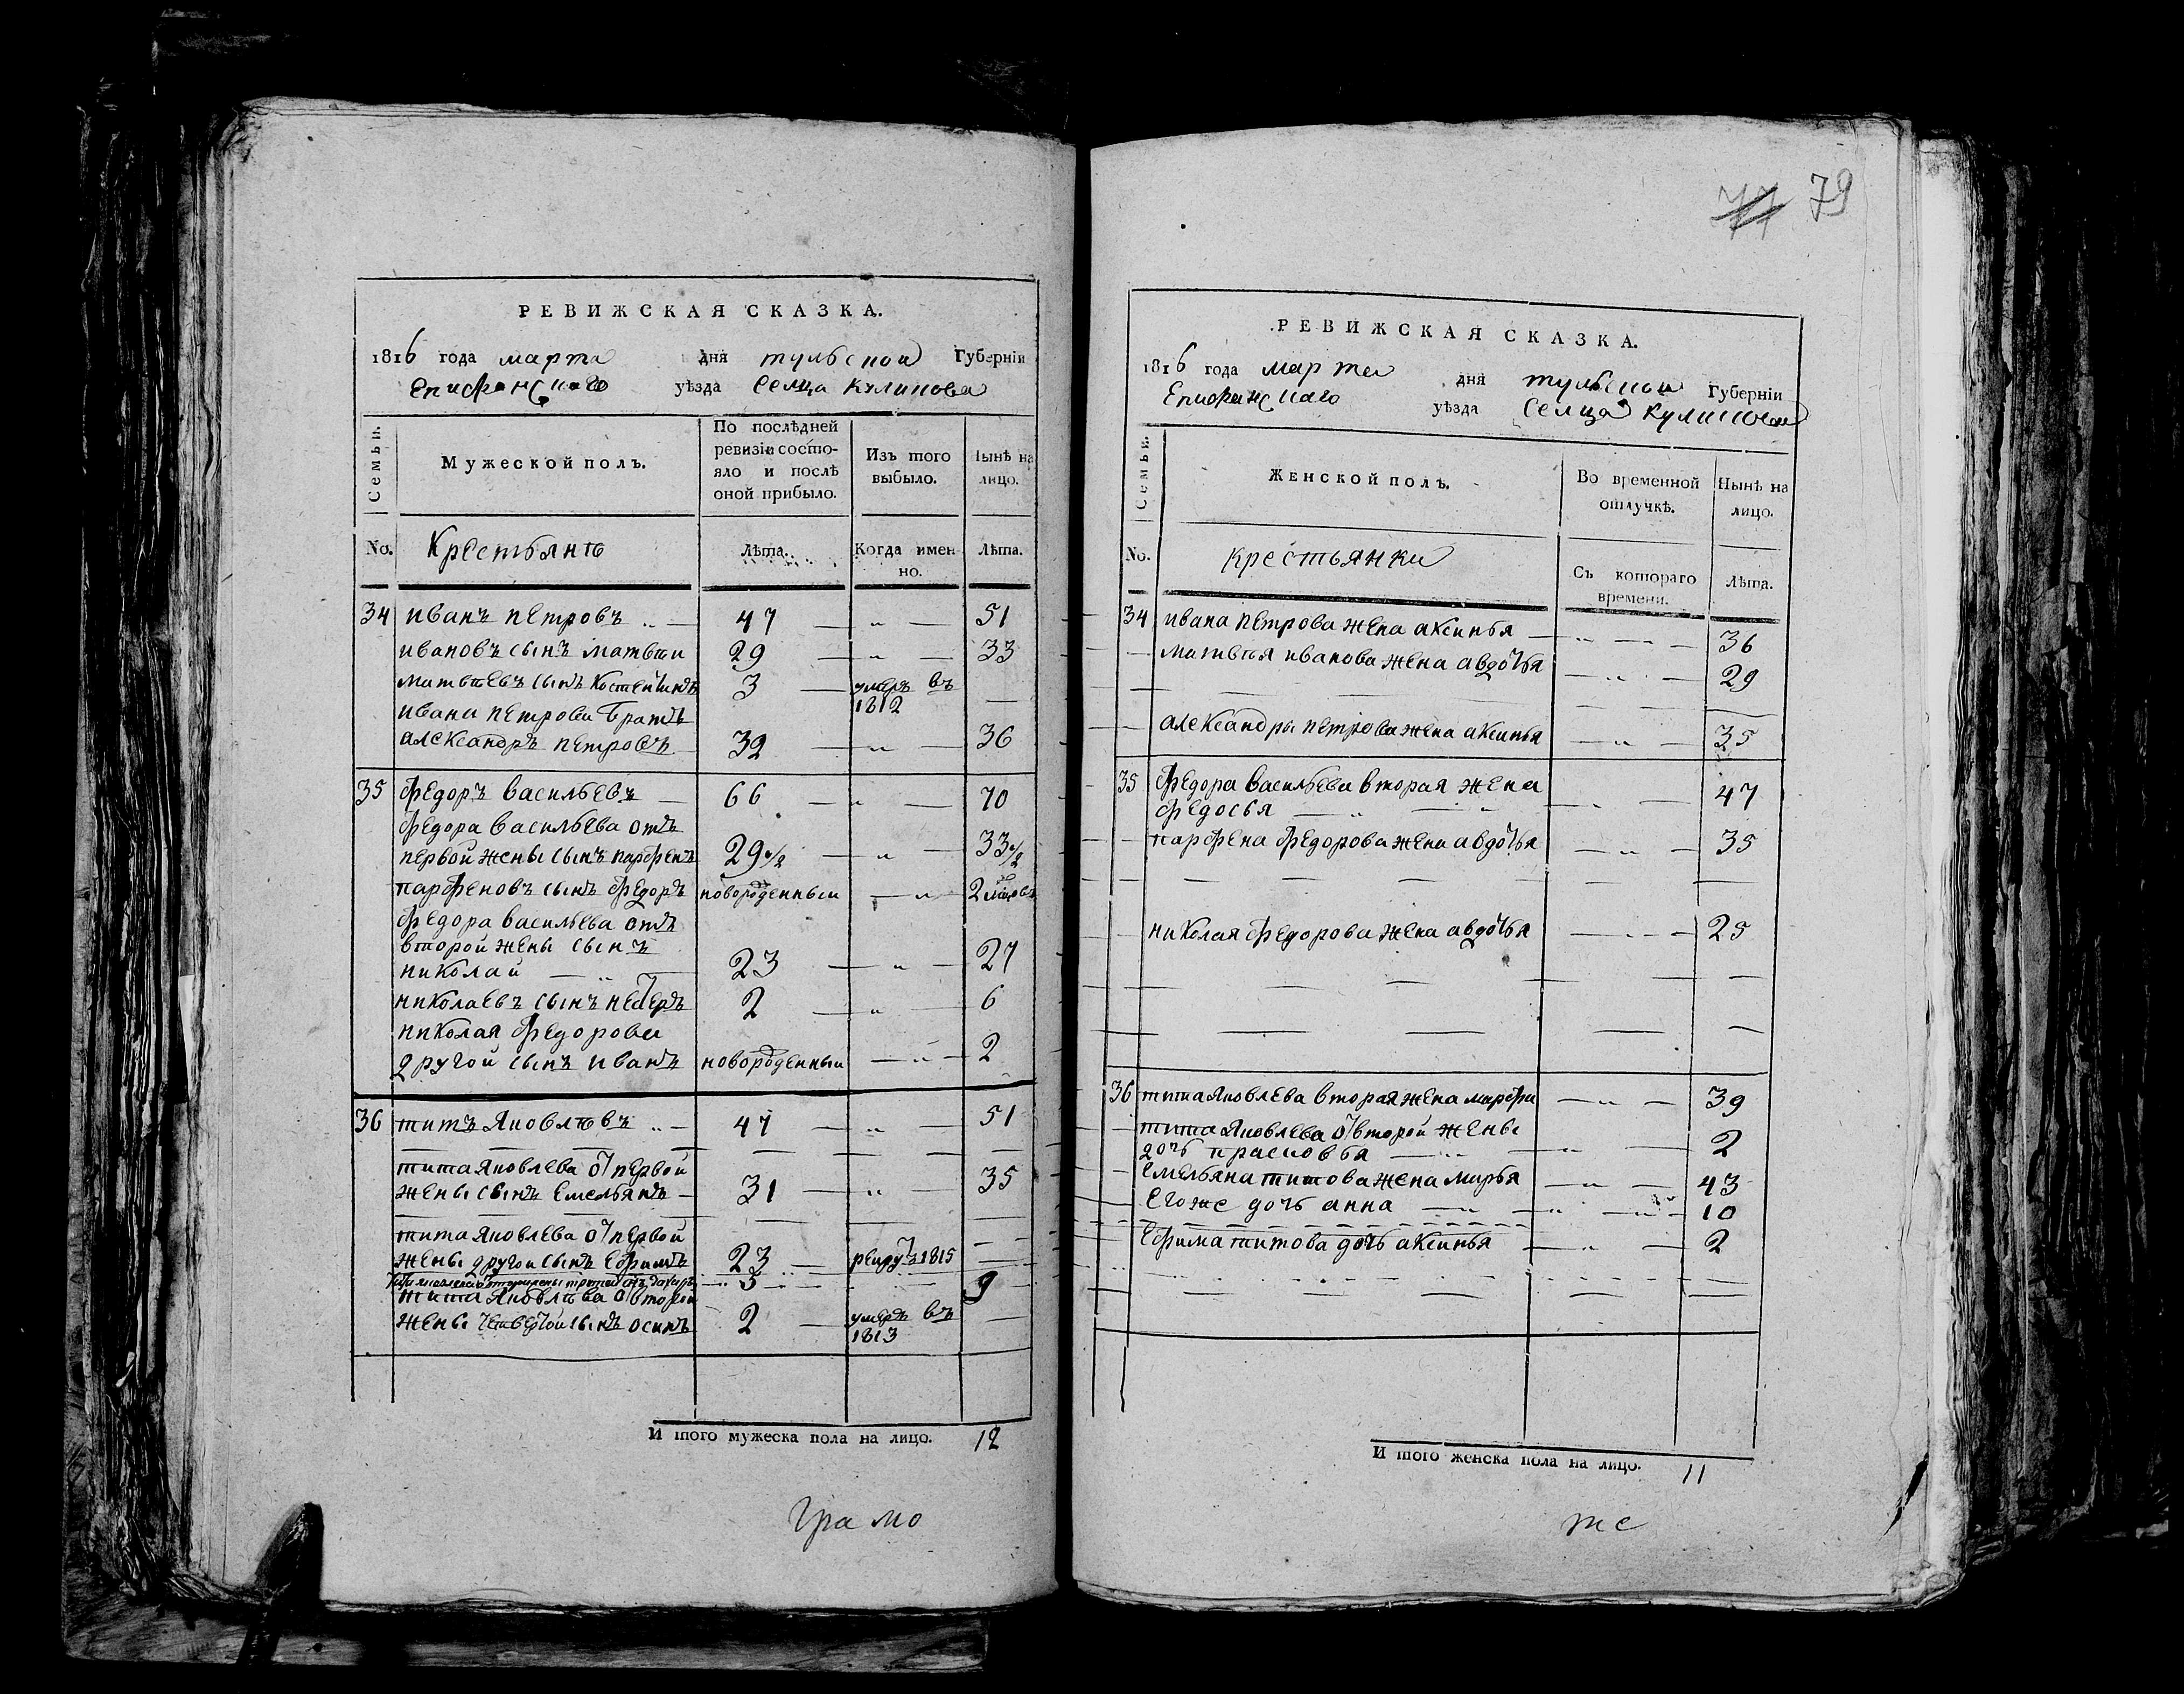 РЕВИЖСКАЯ СКАЗКА.
1816 года марта дня тульской Губерніи
Епифанскаго уѣзда Селца Куликова
Семьи.
Мужеской полъ.
По послѣдней ревизіи состояло и послѣ оной прибыло.
Изъ того выбыло.
Нынѣ на лицо.
No.
Крестьянѣ
Лѣта.
Когда именно.
Лѣта.
34 иванъ петровъ 47 51
ивановъ сынъ матвѣи 29 33
матвѣевъ сынъ костентинъ 3 умеръ въ 1812
ивана петрова братъ
александръ петровъ 32 36
35 федоръ васильевъ 66 70
федора васильева отъ
первой жены сынъ парфенъ 29 1/2 33 1/2
парфеновъ сынъ федоръ новорожденныи 2
федора васильева отъ
второй жены сынъ
николай 23 27
николаевъ сынъ 2 6
николая федорова
другой сынъ иванъ новорожденныи 2
36 титъ Яковлѣвъ 47 51
тита Яковлева от первой
жены сынъ Емельянъ 31 35
тита Яковлева от первой
жены другои сынъ Ефимъ 23 рекрут 1815
тита яковлева от второй жены третей сынъ захаръ 5 9
тита Яковлѣва от второй
жены четвертой сынъ осипъ 2 умеръ въ 1813
И того мужеска пола на лицо. 12
Грамо
77 79
РЕВИЖСКАЯ СКАЗКА.
1816 года марта дня тульской Губерніи
Епифанскаго уѣзда Селца Куликова
Семьи.
Женской полъ.
Во временной отлучкѣ.
Нынѣ на лицо.
No.
крестьянки
Съ котораго времени.
Лѣта.
34 ивана петрова жена аксинья 36
матвѣя иванова жена авдотья 29
александра петрова жена аксинья 35
35 федора васильева вторая жена
федосья 47
парфена федорова жена авдотья 35
николая федорова жена авдотья 25
36 тита Яковлева вторая жена марфа 39
тита Яковлева от второй жены
дочь прасковья 2
емельяна титова жена марья 43
его же дочь анна 10
Ефима титова дочь аксинья 2
И того женска пола на лицо. 11
те